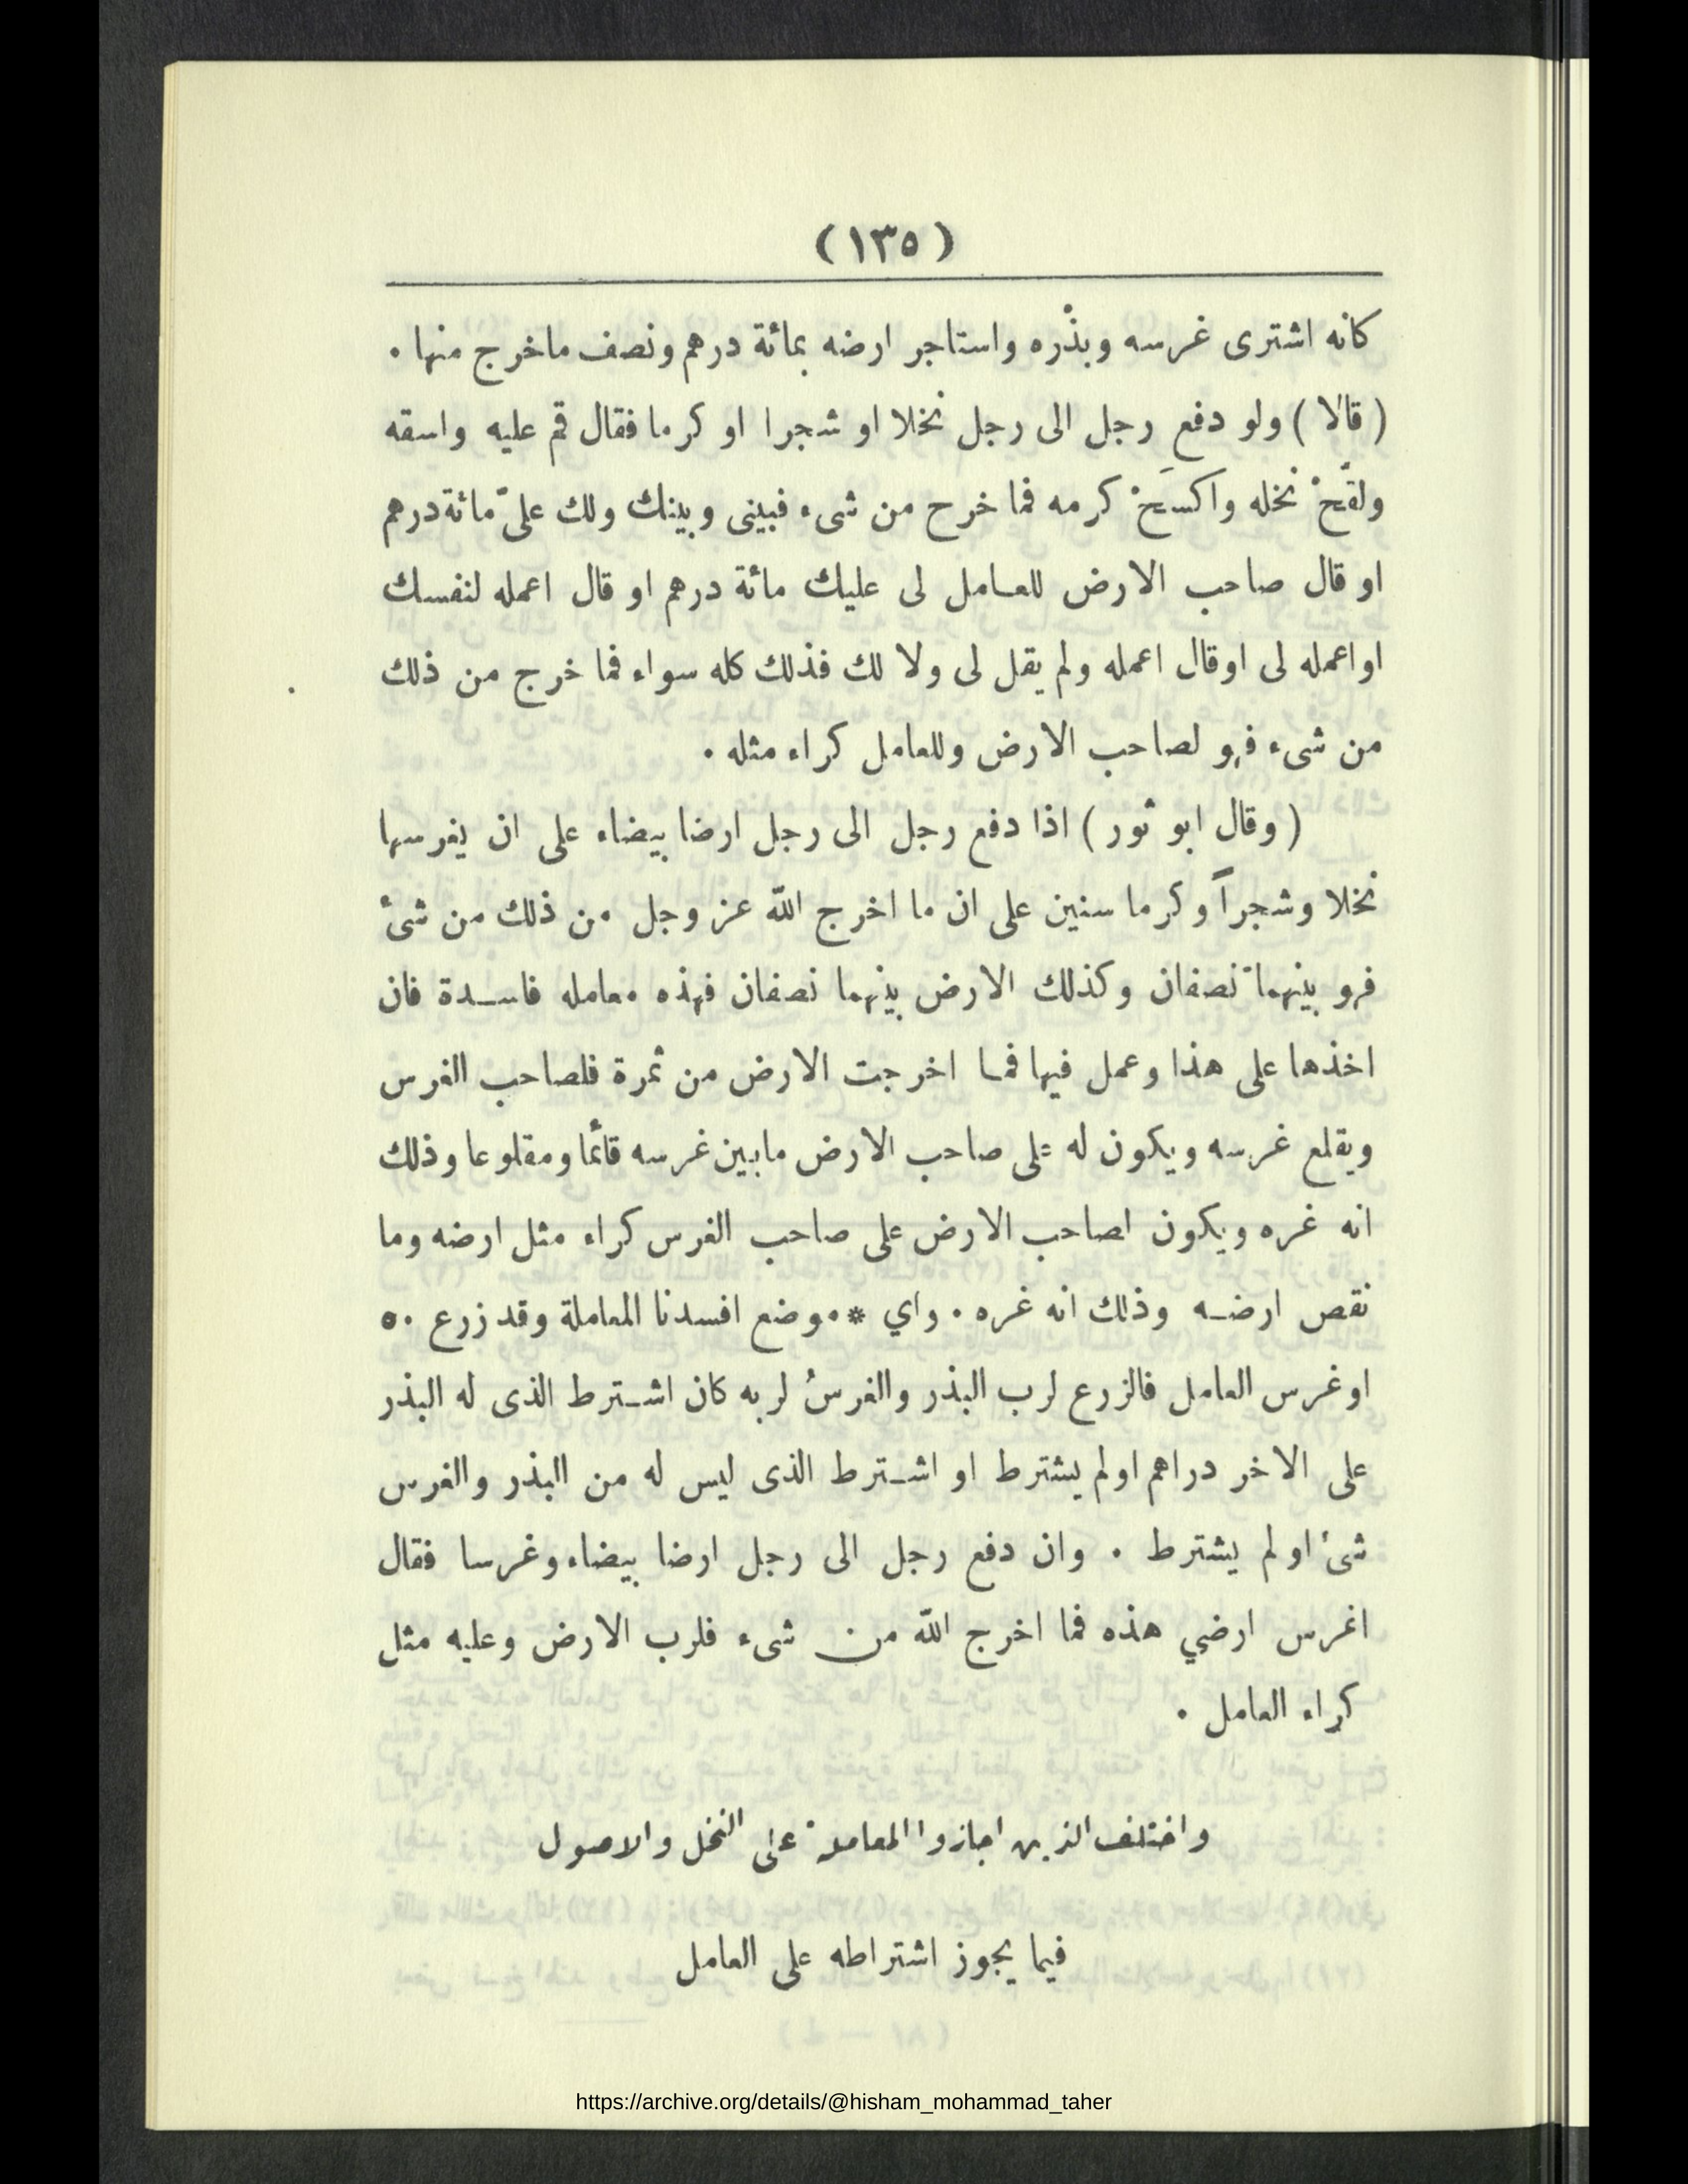 (١٣٥)
كانه اشترى غرسه وبذْره واستاجر ارضه بمائة درهم ونصف ماخرج منها .
( قالا ) ولو دفع رجل الى رجل نخلا او شجرا او كرما فقال قم عليه واسقه
ولقّحْ نخله واكسَحْ كرمه فما خرح من شىء فبينى وبينك ولك علىّ مائة درهم
او قال صاحب الارض للعامل لى عليك مائة درهم او قال اعمله لنفسك
او اعمله لى اوقال اعمله ولم يقل لى ولا لك فذلك كله سواء فما خرج من ذلك
من شىء فهو لصاحب الارض وللعامل كراء مثله .
( وقال ابو ثور ) اذا دفع رجل الى رجل ارضا بيضاء على ان يغرسها
نخلا وشجراً وكرما سنين على ان ما اخرج الله عز وجل من ذلك من شئ
فهو بينهما نصفان وكذلك الارض بينهما نصفان فهذه معامله فاسدة فان
اخذها على هذا وعمل فيها فما اخرجت الارض من ثمرة فلصاحب الغرس
ويقلع غرسه ويكون له على صاحب الارض مابين غرسه قائما ومقلوعا وذلك
انه غره ويكون لصاحب الارض على صاحب الغرس كراء مثل ارضه وما
نقص ارضه وذلك انه غره . واي * موضع افسدنا المعاملة وقد زرع ٥٠
او غرس العامل فالزرع لرب البذر والغرسُ لربه كان اشترط الذى له البذر
على الاخر دراهم اولم يشترط او اشترط الذى ليس له من البذر والغرس
شئ او لم يشترط . وان دفع رجل الى رجل ارضا بيضاء وغرسا فقال
اغرس ارضي هذه فما اخرج الله من شىء فلرب الارض وعليه مثل
كراء العامل .
واختلف الذين اجازوا المعاملة على النخل والاصول
فيما يجوز اشتراطه على العامل
https://archive.org/details/@hisham_mohammad_taher